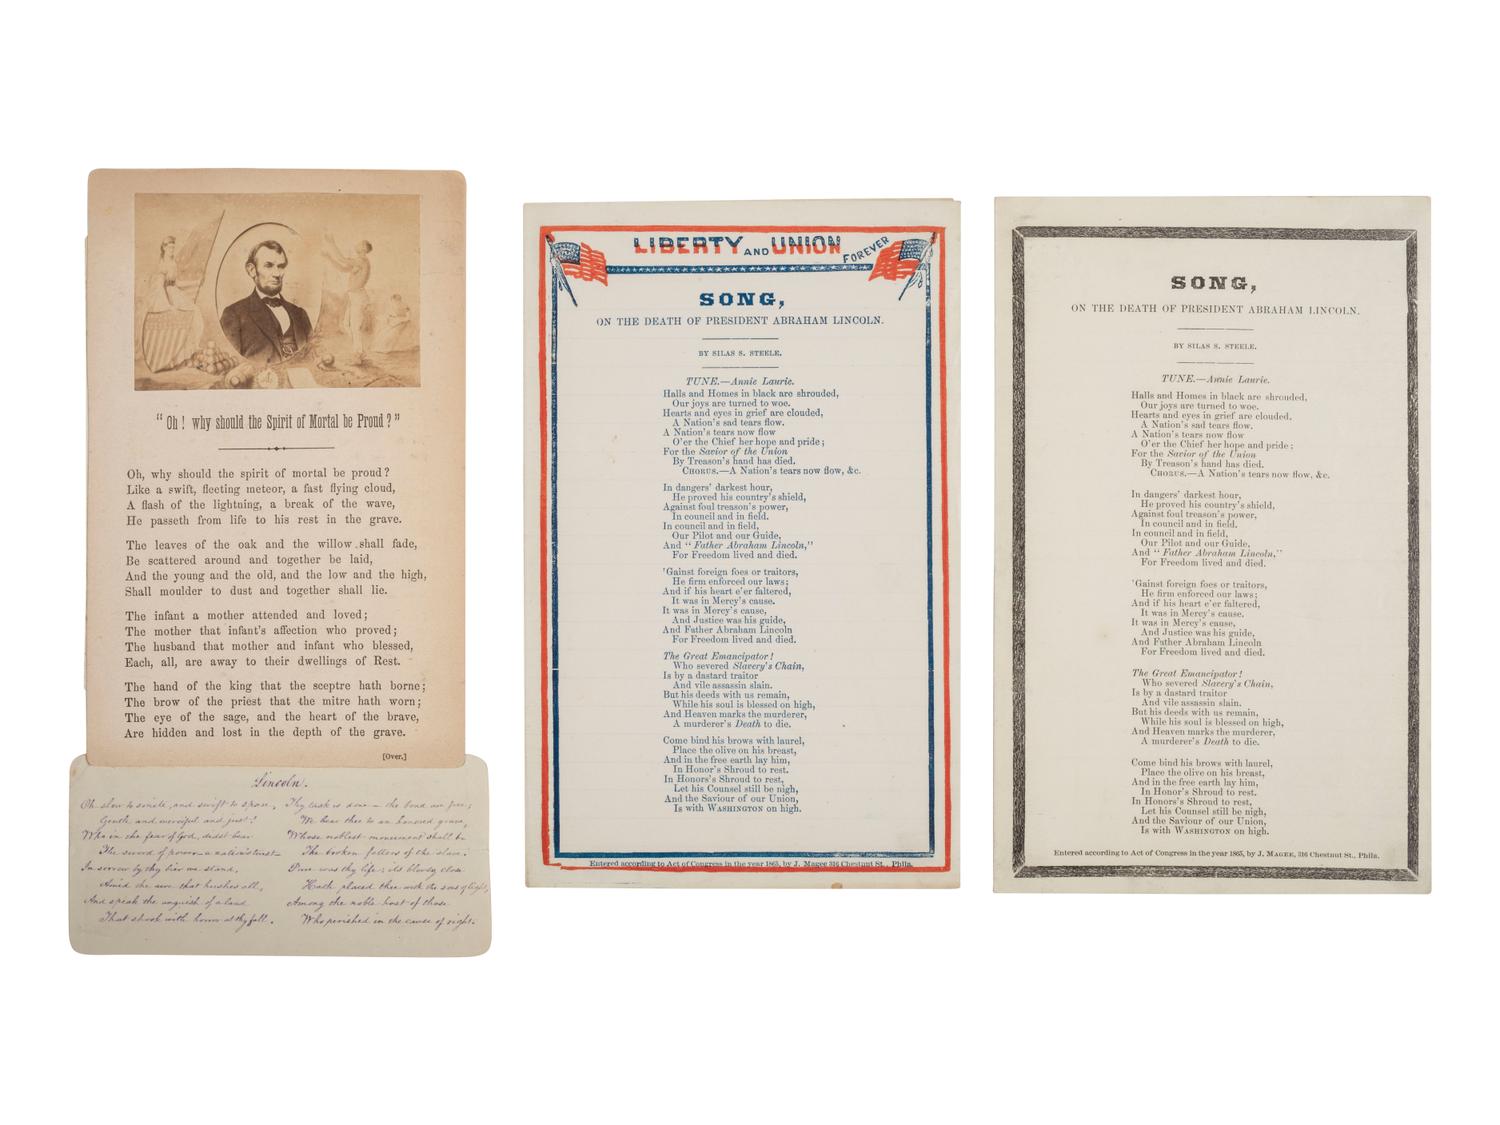 "Oh! why should the Spirit of Mortal be Proud?"
Oh, why should the spirit of mortal be proud?
Like a swift, fleeting meteor, a fast flying cloud,
A flash of the lightning, a break of the wave,
He passeth from life to his rest in the grave.
The leaves of the oak and the willow shall fade,
Be scattered around and together be laid,
And the young and the old, and the low and the high,
Shall moulder to dust and together shall lie.
The infant a mother attended and loved;
The mother that infant's affection who proved;
The husband that mother and infant who blessed,
Each, all, are away to their dwellings of Rest.
The hand of the king that the sceptre hath borne;
The brow of the priest that the mitre hath worn;
The eye of the sage, and the heart of the brave,
Are hidden and lost in the depth of the grave.
[Over.]
Lincoln.
Oh slow to smite, and swift to spare,
Gentle and merciful and just!
Who in the fear of God, didst bear
The sword of power—a nation's trust—
In sorrow by thy bier we stand,
Amid the awe that hushes all,
And speak the anguish of a land
That shook with horror at thy fall.
Thy task is done—the bond are free;
We bear thee to an honored grave,
Whose noblest monument shall be
The broken fetters of the slave.
Pure was thy life; its bloody close
Hath placed thee with the sons of light,
Among the noble host of those
Who perished in the cause of right.
LIBERTY AND UNION FOREVER
SONG,
ON THE DEATH OF PRESIDENT ABRAHAM LINCOLN.
BY SILAS S. STEELE.
TUNE.—Annie Laurie.
Halls and Homes in black are shrouded,
Our joys are turned to woe.
Hearts and eyes in grief are clouded,
A Nation's sad tears flow.
A Nation's tears now flow
O'er the Chief her hope and pride;
For the Savior of the Union
By Treason's hand has died.
CHORUS.—A Nation's tears now flow, &c.
In dangers' darkest hour,
He proved his country's shield,
Against foul treason's power,
In council and in field.
In council and in field,
Our Pilot and our Guide,
And "Father Abraham Lincoln,"
For Freedom lived and died.
'Gainst foreign foes or traitors,
He firm enforced our laws;
And if his heart e'er faltered,
It was in Mercy's cause.
It was in Mercy's cause,
And Justice was his guide,
And Father Abraham Lincoln
For Freedom lived and died.
The Great Emancipator!
Who severed Slavery's Chain,
Is by a dastard traitor
And vile assassin slain.
But his deeds with us remain,
While his soul is blessed on high,
And Heaven marks the murderer,
A murderer's Death to die.
Come bind his brows with laurel,
Place the olive on his breast,
And in the free earth lay him,
In Honor's Shroud to rest.
In Honors's Shroud to rest,
Let his Counsel still be nigh,
And the Saviour of our Union,
Is with WASHINGTON on high.
Entered according to Act of Congress in the year 1865, by J. Magee 316 Chestnut St., Phila.
SONG,
ON THE DEATH OF PRESIDENT ABRAHAM LINCOLN.
BY SILAS S. STEELE.
TUNE.—Annie Laurie.
Halls and Homes in black are shrouded,
Our joys are turned to woe.
Hearts and eyes in grief are clouded.
A Nation's sad tears flow.
A Nation's tears now flow
O'er the Chief her hope and pride;
For the Savior of the Union
By Treason's hand has died.
CHORUS.—A Nation's tears now flow, &c.
In dangers' darkest hour,
He proved his country's shield,
Against foul treason's power,
In council and in field.
In council and in field,
Our Pilot and our Guide,
And "Father Abraham Lincoln,"
For Freedom lived and died.
'Gainst foreign foes or traitors,
He firm enforced our laws;
And if his heart e'er faltered,
It was in Mercy's cause.
It was in Mercy's cause,
And Justice was his guide,
And Father Abraham Lincoln
For Freedom lived and died.
The Great Emancipator!
Who severed Slavery's Chain,
Is by a dastard traitor
And vile assassin slain.
But his deeds with us remain,
While his soul is blessed on high,
And Heaven marks the murderer,
A murderer's Death to die.
Come bind his brows with laurel,
Place the olive on his breast,
And in the free earth lay him,
In Honor's Shroud to rest.
In Honors's Shroud to rest,
Let his Counsel still be nigh,
And the Saviour of our Union,
Is with WASHINGTON on high.
Entered according to Act of Congress in the year 1865, by J. MAGEE, 316 Chestnut St., Phila.